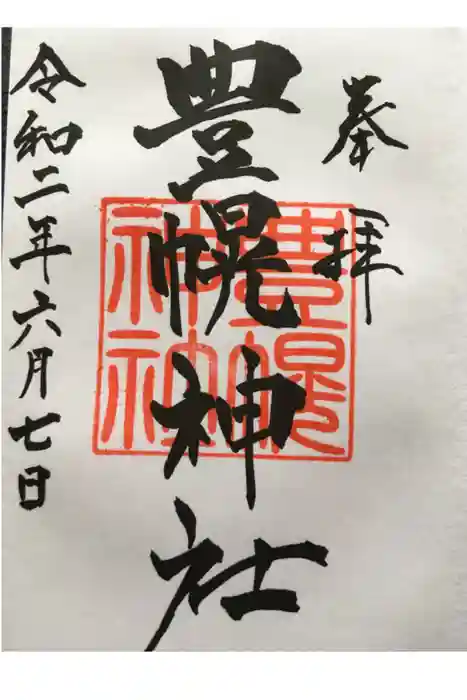 奉拝
豊幌神社
豊幌
神社
令和二年六月七日